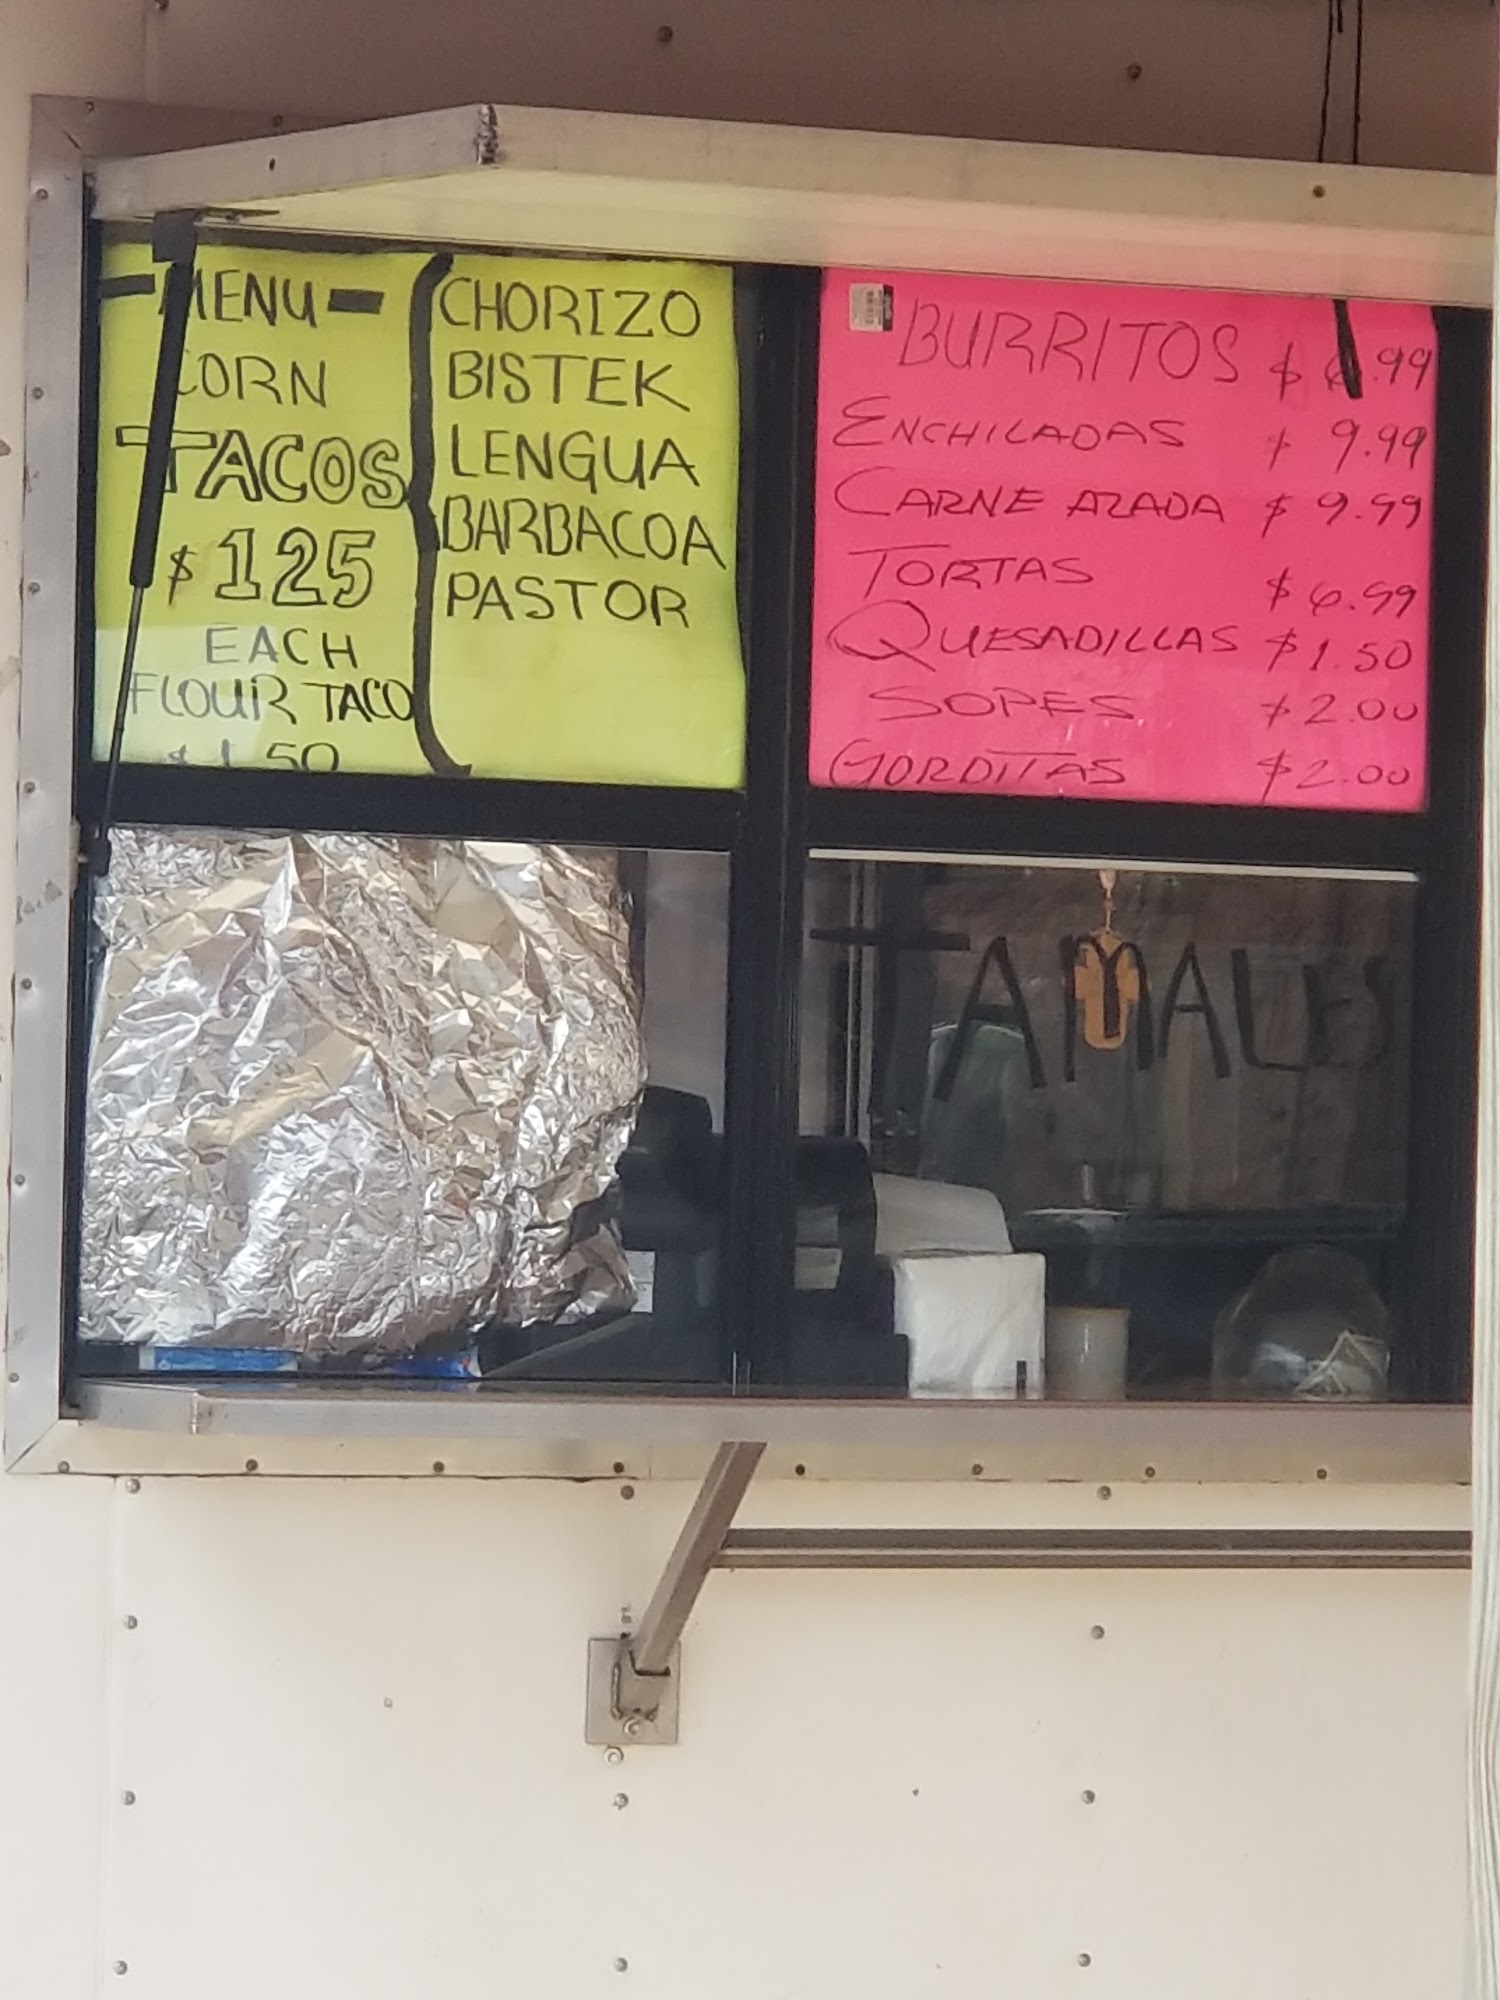 -MENU-
CORN
TACOS
$125
EACH
FLOUR TACO
$1.50
CHORIZO
BISTEK
LENGUA
BARBACOA
PASTOR
BURRITOS $6.99
ENCHILADAS $9.99
CARNE AZADA $9.99
TORTAS $6.99
QUESADILLAS $1.50
SOPES $2.00
GORDITAS $2.00
TAMALES